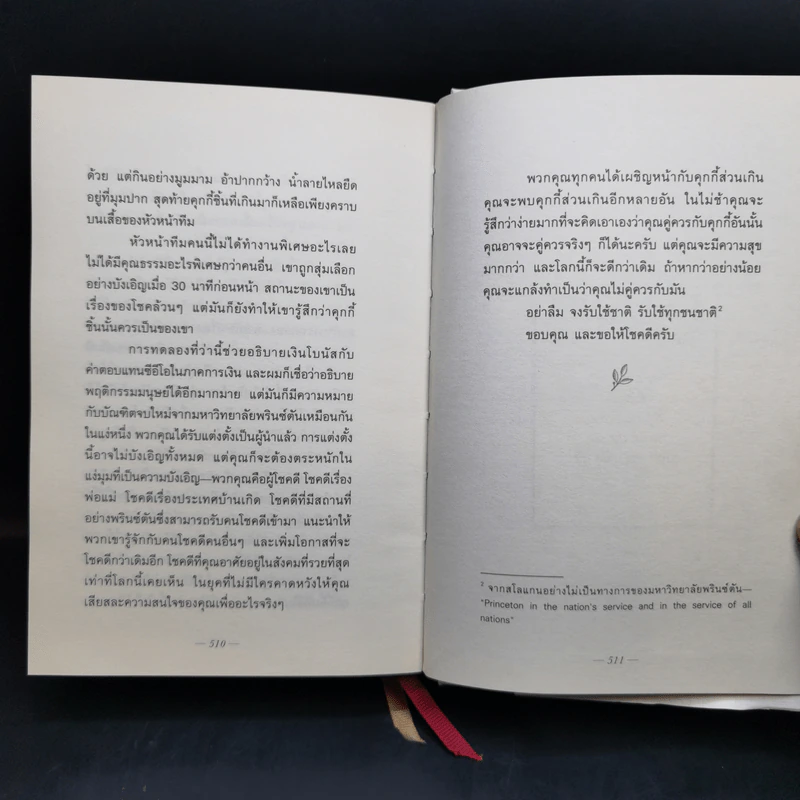 ด้วย แต่กินอย่างมูมมาม อ้าปากกว้าง น้ำลายไหลยืด
อยู่ที่มุมปาก สุดท้ายคุกกี้ชิ้นที่เกินมาก็เหลือเพียงคราบ
บนเสื้อของหัวหน้าทีม
หัวหน้าทีมคนนี้ไม่ได้ทำงานพิเศษอะไรเลย
ไม่ได้มีคุณธรรมอะไรพิเศษกว่าคนอื่น เขาถูกสุ่มเลือก
อย่างบังเอิญเมื่อ 30 นาทีก่อนหน้า สถานะของเขาเป็น
เรื่องของโชคล้วนๆ แต่มันก็ยังทำให้เขารู้สึกว่าคุกกี้
ชิ้นนั้นควรเป็นของเขา
การทดลองที่ว่านี้ช่วยอธิบายเงินโบนัสกับ
ค่าตอบแทนซีอีโอในภาคการเงิน และผมก็เชื่อว่าอธิบาย
พฤติกรรมมนุษย์ได้อีกมากมาย แต่มันก็มีความหมาย
กับบัณฑิตจบใหม่จากมหาวิทยาลัยพรินซ์ตันเหมือนกัน
ในแง่หนึ่ง พวกคุณได้รับแต่งตั้งเป็นผู้นำแล้ว การแต่งตั้ง
นี้อาจไม่บังเอิญทั้งหมด แต่คุณก็จะต้องตระหนักใน
แง่มุมที่เป็นความบังเอิญ—พวกคุณคือผู้โชคดี โชคดีเรื่อง
พ่อแม่ โชคดีเรื่องประเทศบ้านเกิด โชคดีที่มีสถานที่
อย่างพรินซ์ตันซึ่งสามารถรับคนโชคดีเข้ามา แนะนำให้
พวกเขารู้จักกับคนโชคดีคนอื่นๆ และเพิ่มโอกาสที่จะ
โชคดีกว่าเดิมอีก โชคดีที่คุณอาศัยอยู่ในสังคมที่รวยที่สุด
เท่าที่โลกนี้เคยเห็น ในยุคที่ไม่มีใครคาดหวังให้คุณ
เสียสละความสนใจของคุณเพื่ออะไรจริงๆ
— 510 —
พวกคุณทุกคนได้เผชิญหน้ากับคุกกี้ส่วนเกิน
คุณจะพบคุกกี้ส่วนเกินอีกหลายอัน ในไม่ช้าคุณจะ
รู้สึกว่าง่ายมากที่จะคิดเอาเองว่าคุณคู่ควรกับคุกกี้อันนั้น
คุณอาจจะคู่ควรจริงๆ ก็ได้นะครับ แต่คุณจะมีความสุข
มากกว่า และโลกนี้ก็จะดีกว่าเดิม ถ้าหากว่าอย่างน้อย
คุณจะแกล้งทำเป็นว่าคุณไม่คู่ควรกับมัน
อย่าลืม จงรับใช้ชาติ รับใช้ทุกชนชาติ²
ขอบคุณ และขอให้โชคดีครับ
² จากสโลแกนอย่างไม่เป็นทางการของมหาวิทยาลัยพรินซ์ตัน—
"Princeton in the nation's service and in the service of all
nations"
— 511 —